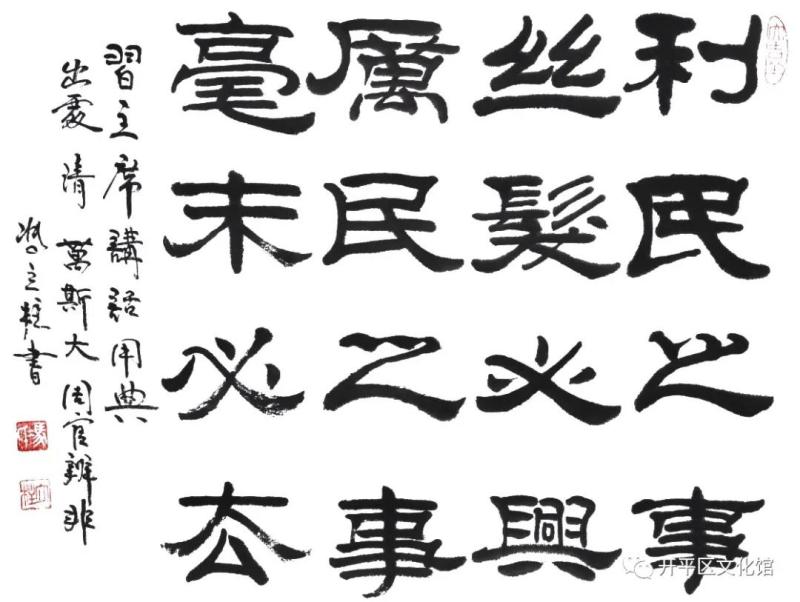 利民之事
丝髮必興
厲民之事
毫末必去
習主席講話用典
出處清萬斯大周官辨非
書
开平区文化馆